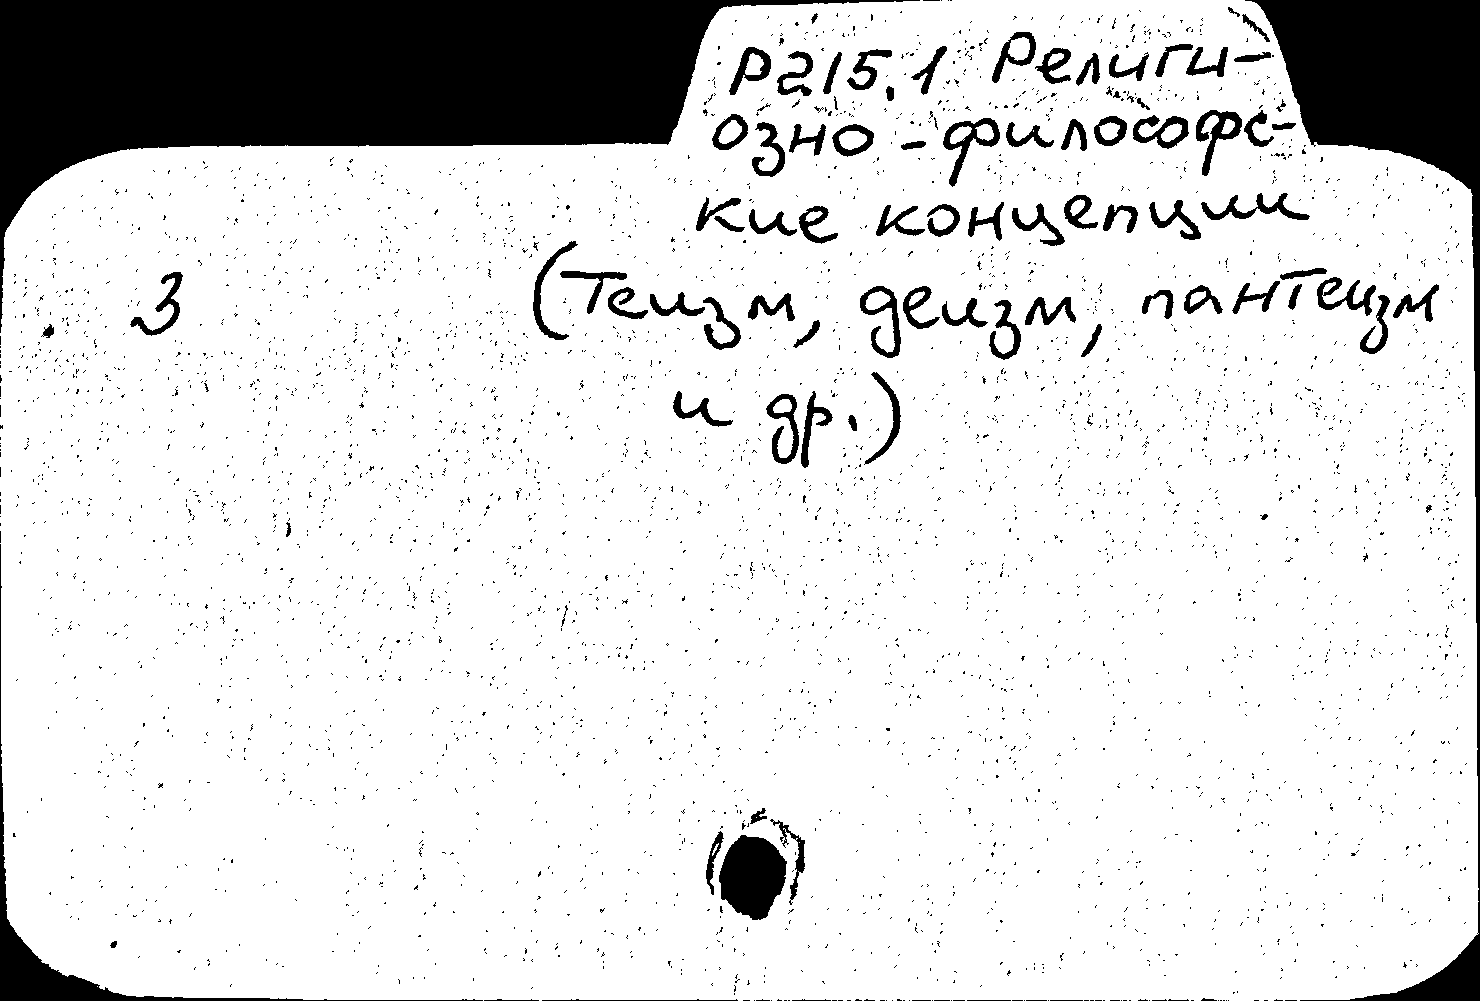 Р215.1 Религи-
озно-философс-
кие концепции
3 (Теизм, деизм, пантеизм
и др.)